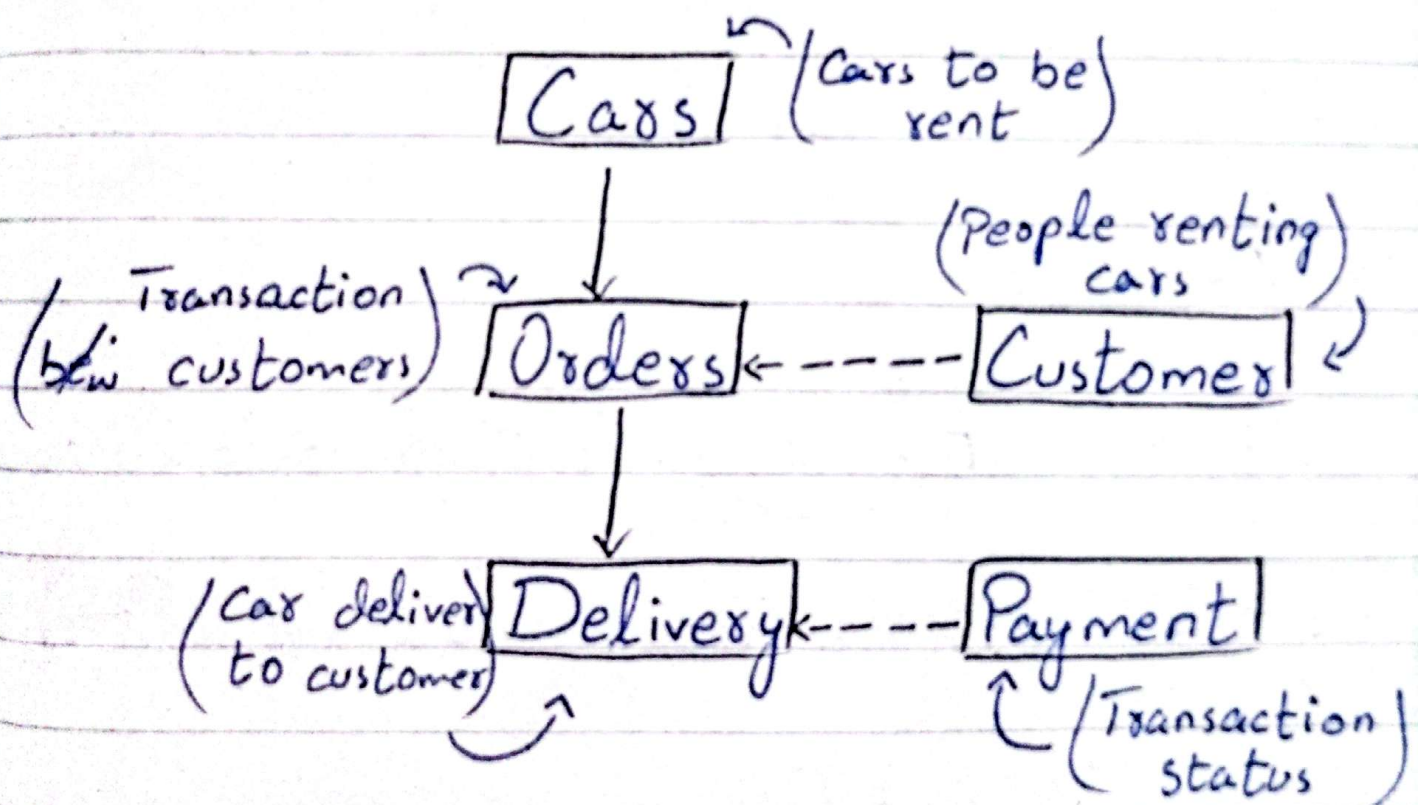 Cars
(Cars to be
rent)
(People renting
cars)
(Transaction
b/w customers)
Orders
Customer
(Car deliver
to customer)
Delivery
Payment
(Transaction
status)